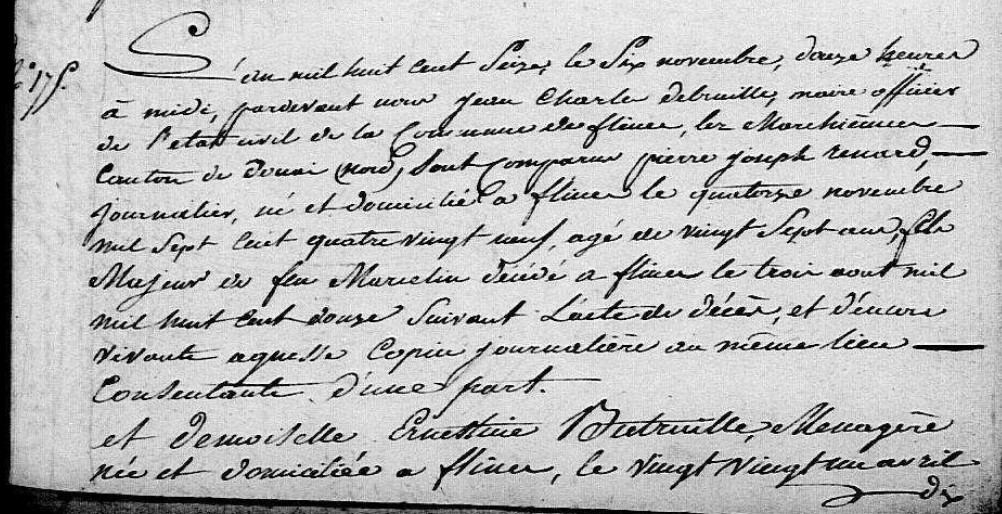 L'an mil huit cent Seize, le Six novembre, douze heures
à midi, pardevant nous jean Charles debruille, maire officier
de l'état civil de la Commune de flines, lez Marchiennes
Canton de Douai (nord) sont comparus pierre joseph renard,
journalier, né et domicilié a flines le quatorze novembre
mil Sept Cent quatre vingt neuf, agé de vingt Sept ans, fils
Majeur de feu Marcelin décédé a flines le trois aout mil
mil huit Cent douze Suivant L'acte de décès, et d'encore
vivante agnesse Copin journalière au même lieu
Consentante d'une part.
et demoiselle Ernestine Butruille, Menagère
née et domiciliée a flines, le vingt vingt un avril
dix